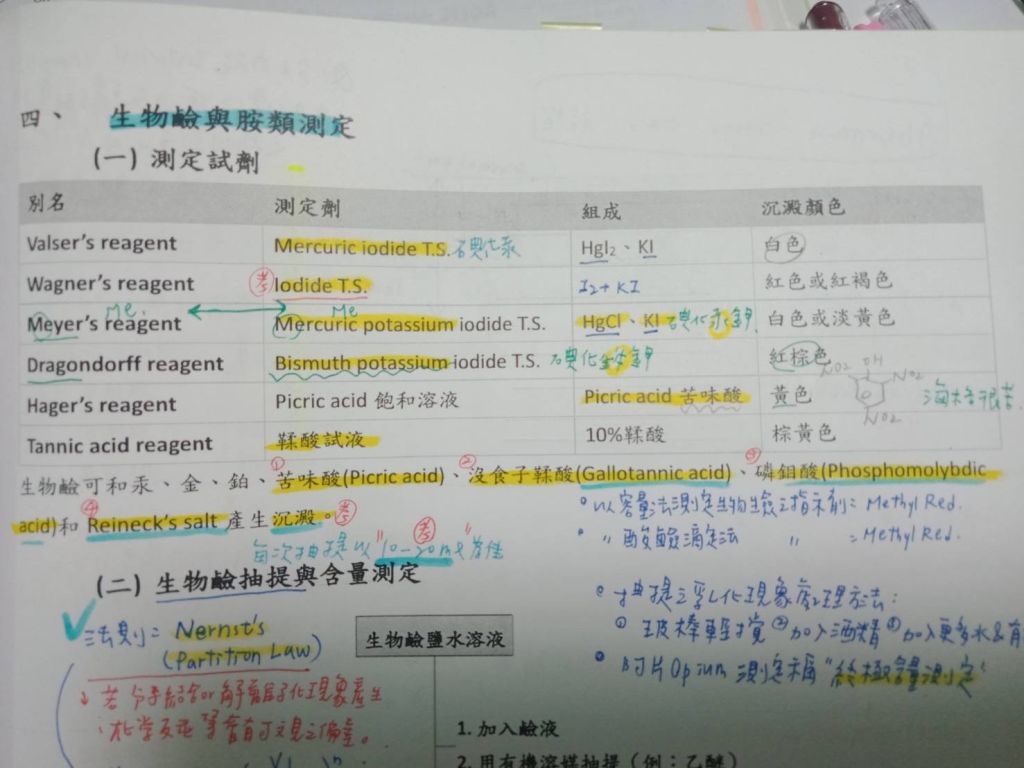 四、 生物鹼與胺類測定
(一) 測定試劑
別名 測定劑 組成 沉澱顏色
Valser's reagent Mercuric iodide T.S. 碘化汞 HgI₂、KI 白色
Wagner's reagent 考 Iodide T.S. I₂+KI 紅色或紅褐色
Me. Me
Meyer's reagent Mercuric potassium iodide T.S. HgCl、KI 碘化汞鉀 白色或淡黃色
Dragondorff reagent Bismuth potassium iodide T.S. 碘化鉍鉀 紅棕色
NO₂ OH NO₂
Hager's reagent Picric acid 飽和溶液 Picric acid 苦味酸 黃色
NO₂
Tannic acid reagent 鞣酸試液 10%鞣酸 棕黃色
① ② ③
生物鹼可和汞、金、鉑、苦味酸(Picric acid)、沒食子鞣酸(Gallotannic acid)、磷鉬酸(Phosphomolybdic
④
acid)和 Reineck's salt 產生沉澱。考
以容量法測定生物鹼之指示劑= Methyl Red.
〃 酸鹼滴定法 〃 = Methyl Red.
考
每次抽提以"10-20ml"為佳
(二) 生物鹼抽提與含量測定
抽提之乳化現象處理方法:
① 玻棒輕攪 ② 加入酒精 ③ 加入更多水&有
阿片Opium 測定稱"終極含量測定"
法則= Nernst's
(Partition Law)
若分子結合or解離離子化現象產生
化學反應 等會有可見之偏差。
生物鹼鹽水溶液
1. 加入鹼液
2. 用有機溶媒抽提(例:乙醚)